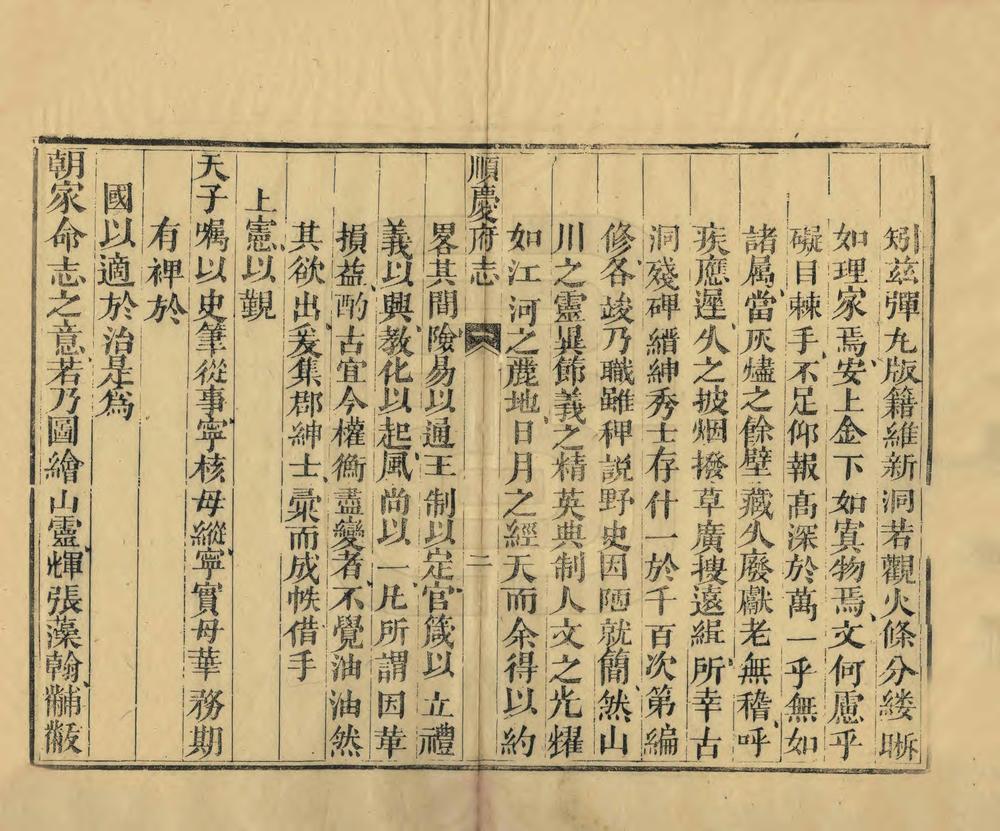 矧茲彈丸版籍維新洞若觀火條分縷晰
如理家焉安上金下如寘物焉文何慮乎
礙目棘手不足仰報高深於萬一乎無如
諸属當灰燼之餘壁藏久廢獻老無稽呼
疾應遲久之披烟撥草廣搜遠緝所幸古
洞殘碑縉紳秀士存什一於千百次第編
修各竣乃職雖稗說野史因陋就簡然山
川之靈異節義之精英典制人文之光燿
如江河之麗地日月之經天而余得以約
順慶府志 二
畧其間險易以通王制以定官箴以立禮
義以興教化以起風尚以一凡所謂因革
損益酌古宜今權衡盡變者不覺油油然
其欲出爰集郡紳士彚而成帙借手
上憲以覲
天子嘱以史筆從事寧核毋縱寧實毋華務期
有裨於
國以適於治是為
朝家命志之意若乃圖繪山靈輝張藻翰黼黻